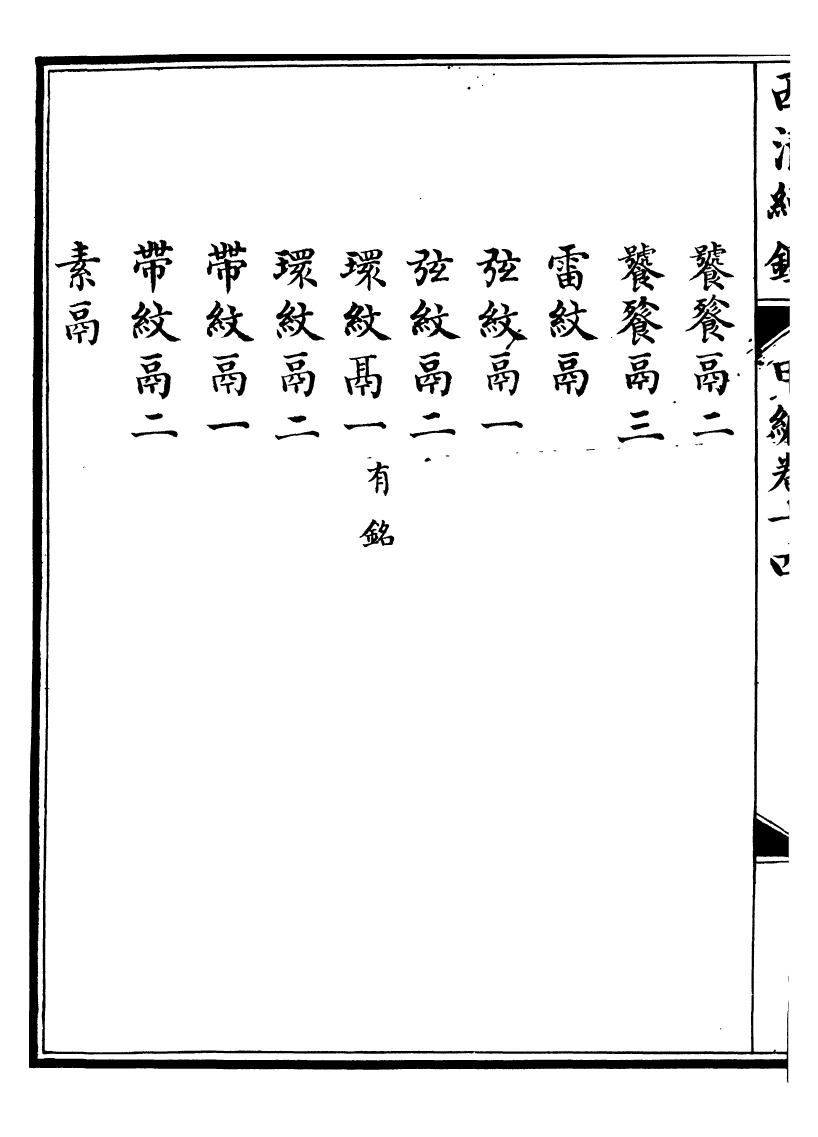 饕餮鬲二
饕餮鬲三
雷紋鬲
弦紋鬲一
弦紋鬲二
環紋鬲一 有銘
環紋鬲二
帶紋鬲一
帶紋鬲二
素鬲